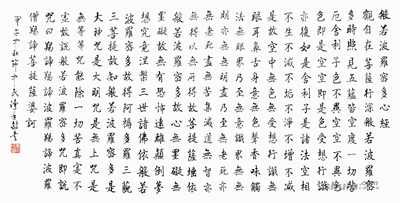 般若波羅密多心經
觀自在菩薩行深般若波羅密
多時照見五蘊皆空度一切苦
厄舍利子色不異空空不異
色色即是空空即是色受想行識
亦復如是舍利子是諸法空相
不生不滅不垢不淨不增不減
是故空中無色無受想行識無
眼耳鼻舌身意無色聲香味觸
法無眼界乃至無意識界無無
明亦無無明盡乃至無老死亦
無老死盡無苦集滅道無智亦
無得以無所得故菩提薩埵依
般若波羅密多故心無罣礙無
罣礙故無有恐怖遠離顛倒夢
想究竟涅槃三世諸佛依般若
波羅密多故得阿耨多羅三藐
三菩提故知般若波羅密多是
大神咒是大明咒是無上咒是
無等等咒能除一切苦真實不
虛故說般若波羅密多咒即說
咒曰羯諦羯諦波羅羯諦波羅
僧羯諦菩提薩婆訶
甲午